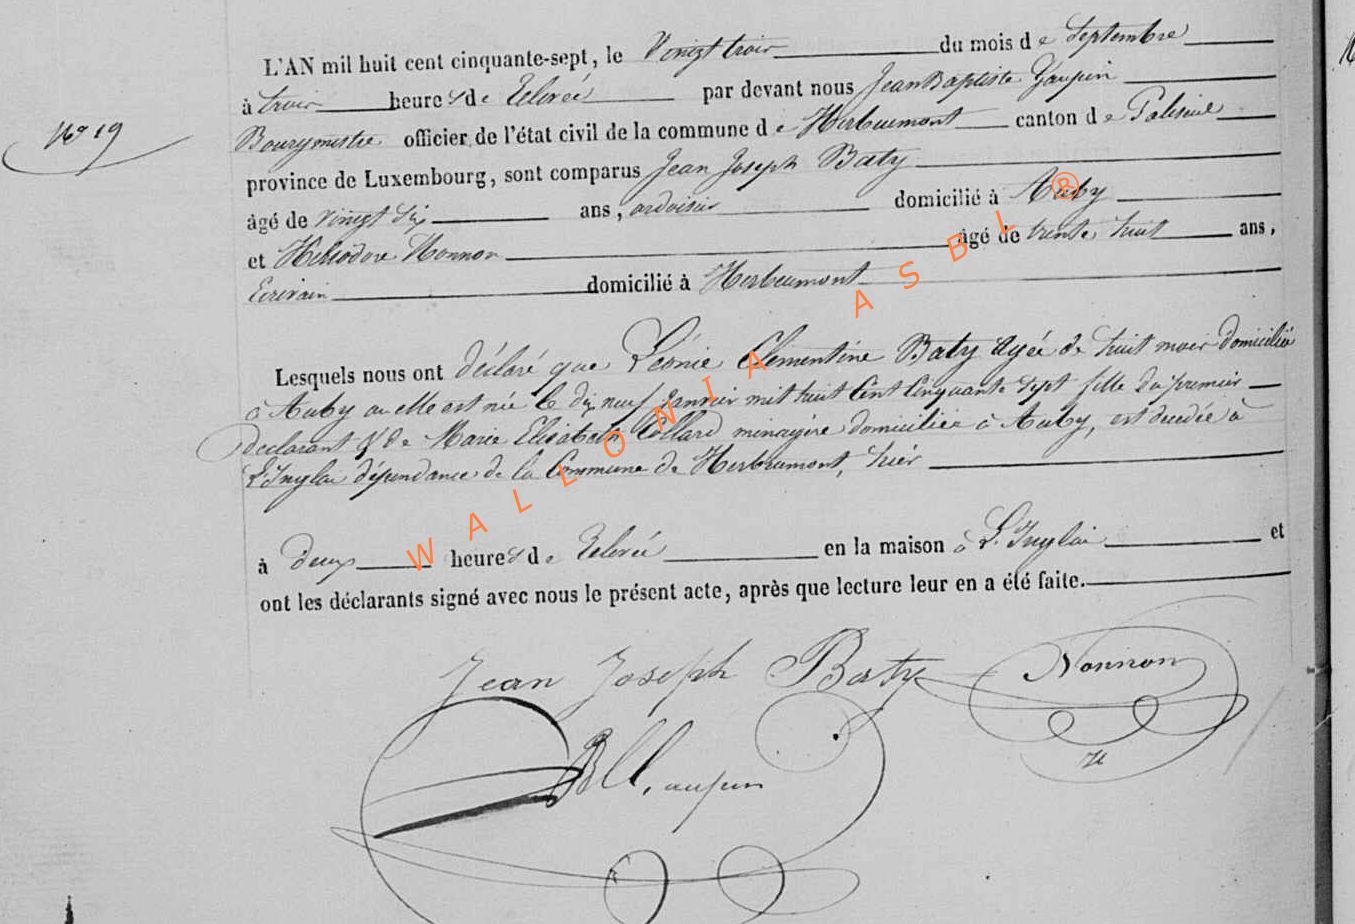 L'AN mil huit cent cinquante-sept, le Vingt trois du mois de Septembre
à trois heures de relevée par devant nous Jean Baptiste
N° 19
Bourgmestre officier de l'état civil de la commune de Herbeumont canton de Paliseul
province de Luxembourg, sont comparus Jean Joseph Baty
âgé de vingt six ans, ardoisier domicilié à Auby
et Héliodore Nonnon âgé de trente huit ans,
Ecrivain domicilié à Herbeumont
Lesquels nous ont déclaré que Léonie Clémentine Baty agée de huit mois domiciliée
à Auby ou elle est née le dix neuf Janvier mil huit Cent Cinquante sept fille du premier
declarant & de Marie Elisabeth Collard ménagère domiciliée à Auby, est decedée à
L'Inglai dépendance de la Commune de Herbeumont, hier
à deux heures de relevée en la maison à L'Inglai et
ont les déclarants signé avec nous le présent acte, après que lecture leur en a été faite.
Jean Joseph Baty Nonnon
H
WALLONIA ASBL ®